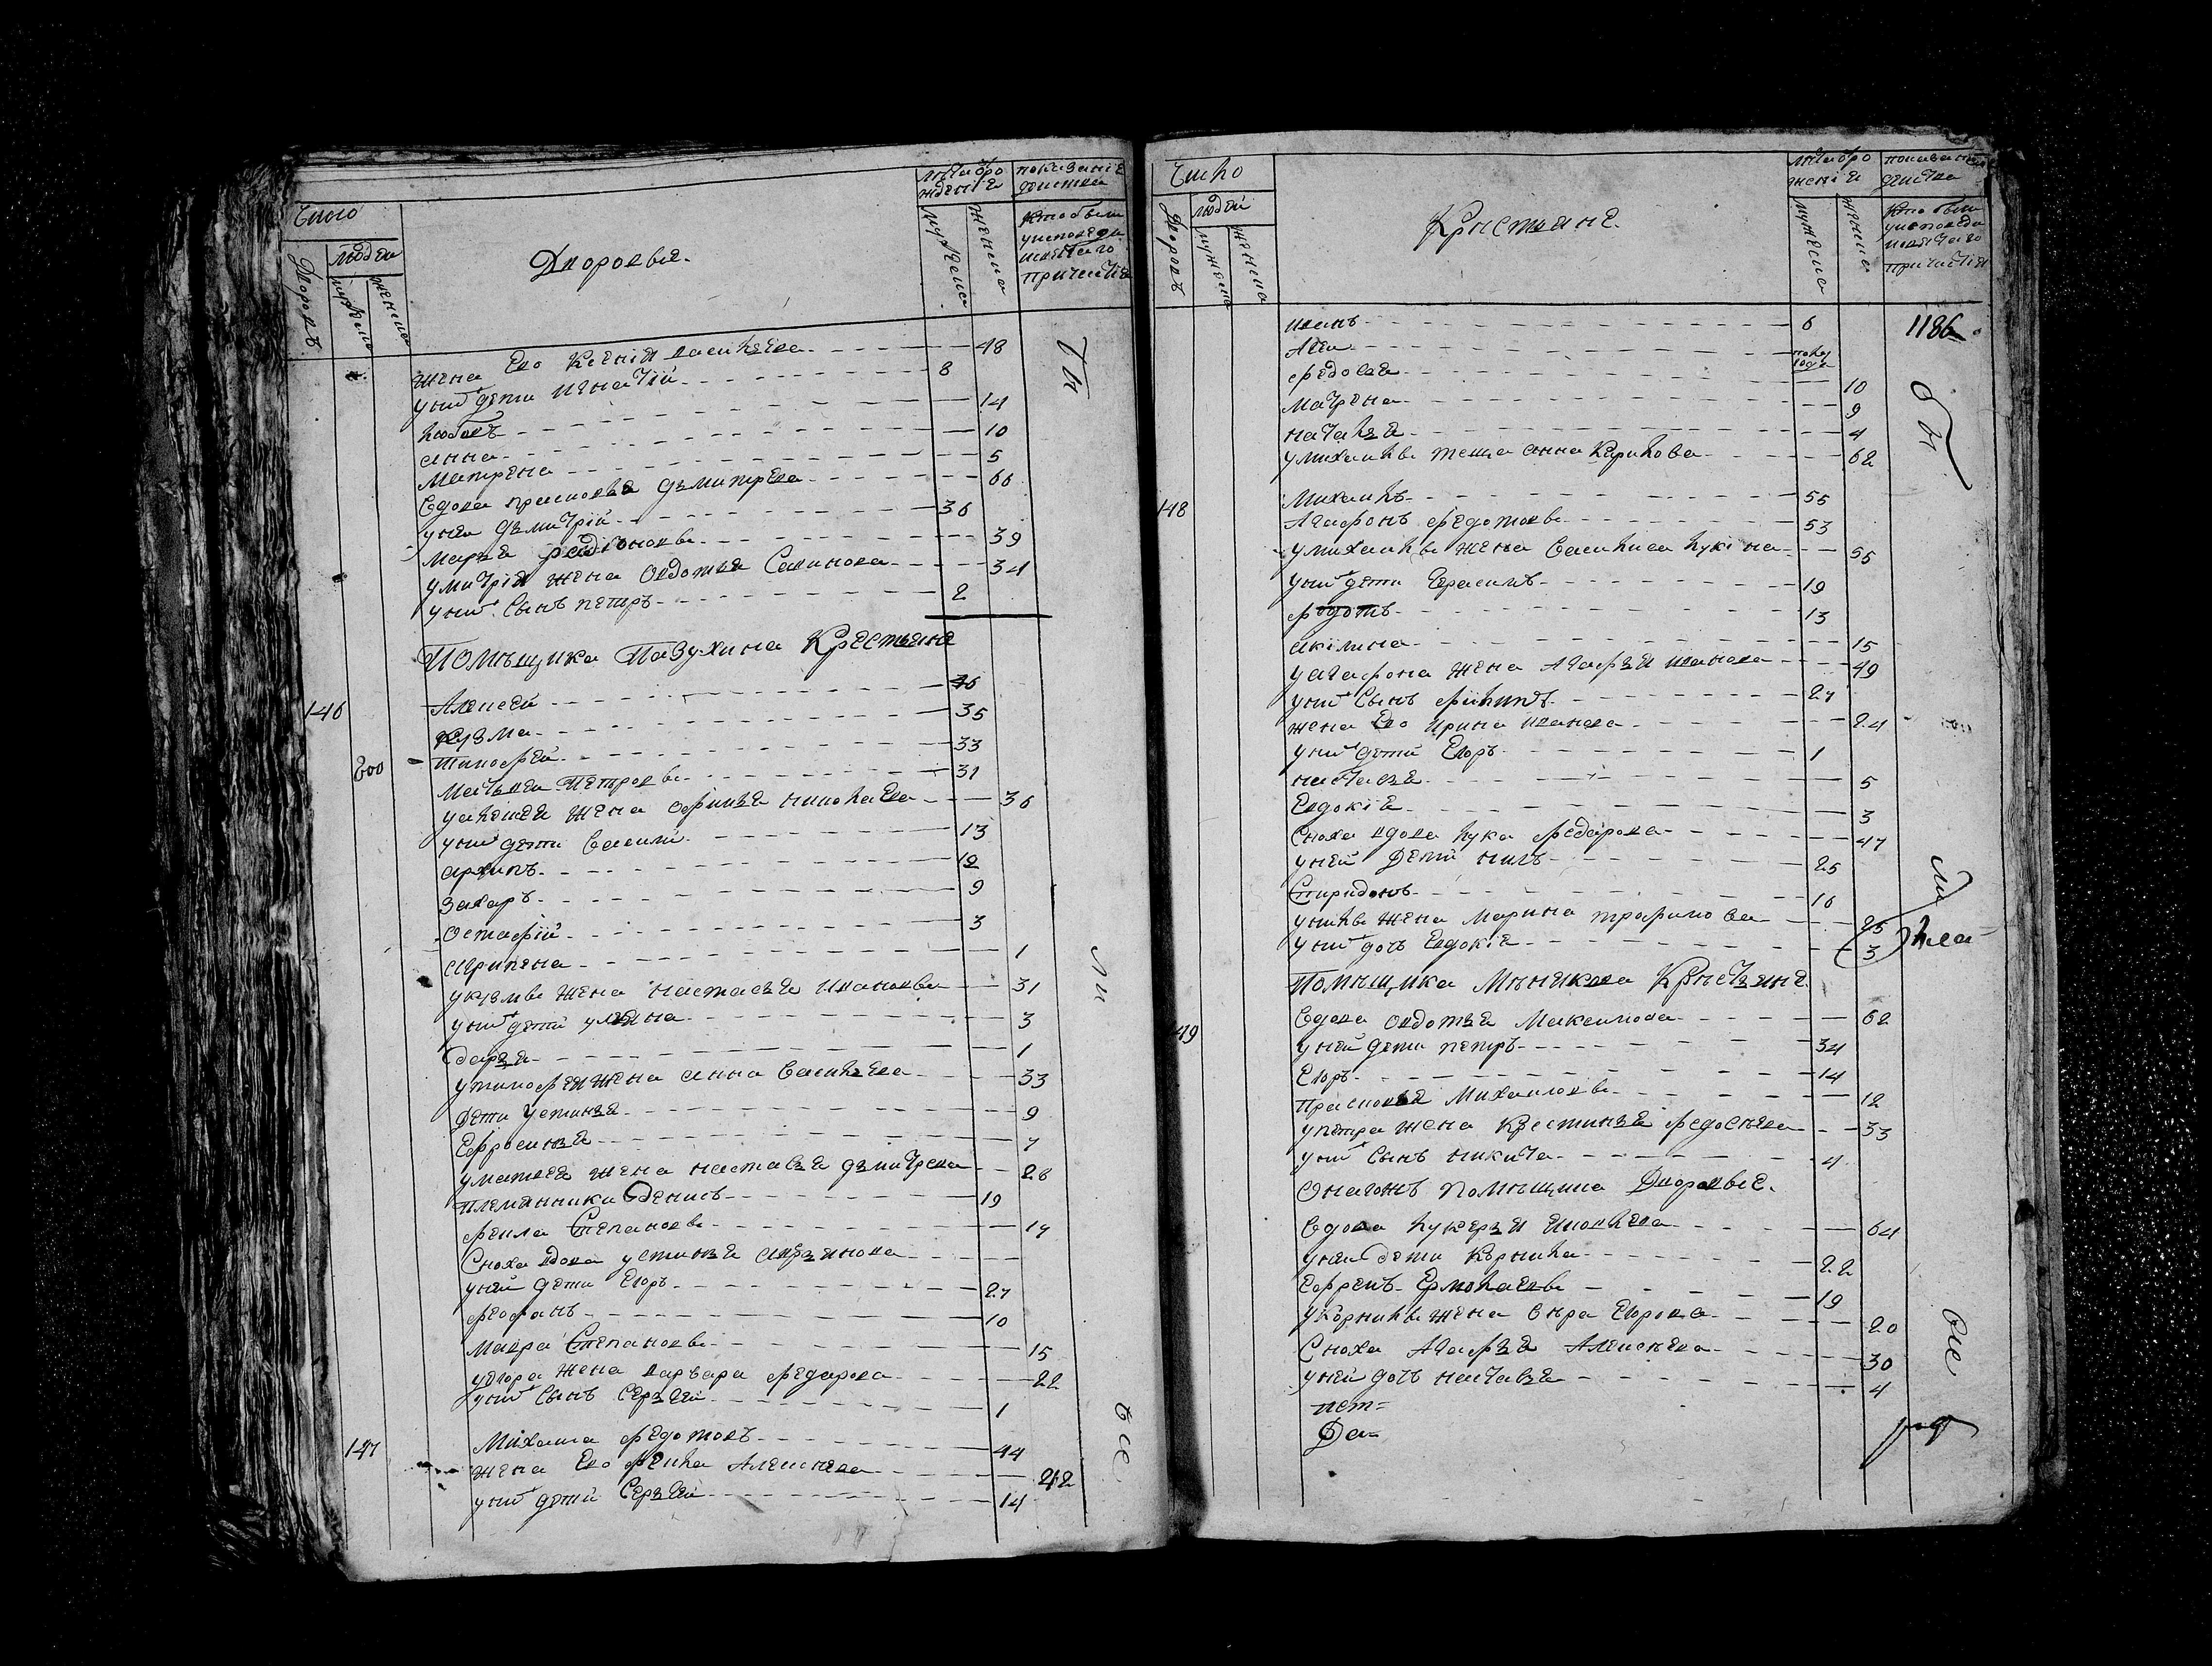 Число
людей
Дворовъ
мужеска
женска
Дворовые.
лѣта ро
жденїя
мужеска
женска
показанїе
действа
кто былъ
у исповеди
и святаго
причастїя
жена Его Ксенїя васильева 48
у них дети игнатїй 8
любовь 14
анна 10
Матрена 5
Вдова прасковья дьмитрева 66
у нея дьмитрїй 36
марья родїонова 39
у митрїя жена Овдотья Савинова 34
у них Сынъ петръ 2
Помѣщика Пазухина Крестьяне
146 Алексей 46
кузма 35
200 тимофей 33
Матьвеи Петровы 31
у алексея жена офимья николаева 36
у них дети Василий 13
архипъ 12
Захаръ 9
Остафїй 3
Агрипена 1
у кузмы жена настасья иванова 31
у них дети ульяна 3
дарья 1
у тимофея жена анна Васильева 33
дети устинья 9
Ефросинья 7
у матвея жена настасья дьмитрева 28
племянники Денисъ 19
фекла Степановы 17
Сноха вдова устинья
у ней дети Егоръ 27
феофанъ 10
Мавра Степановы 15
у егора жена варвара федарова 22
у них Сынъ Сергей 1
147 Михаила федотовъ 44
жена Его фекла Алексеева 42
у них дети Сергей 14
ты
ли
все
Число
людей
Дворовъ
мужеска
женска
Крестьяне.
лѣта ро
женїя
мужеска
женска
показанїе
действа
кто былъ
у исповеди
и святаго
причастїя
1186
иванъ 6
Аѳеи полу
года
федосья 10
Матрена 9
наталья 4
у михаилы теща анна Кирилова 62
148 Михаилъ 55
Агафонъ федотовы 53
у михаилы жена Василиса лукїна 55
у них дети Герасимъ 19
федотъ 13
акїлина 15
у агафона жена Агафья иванова 49
у них Сынъ филипъ 27
жена Его ирина иванова 24
у них дети Егоръ 1
настасья 5
Евдокїя 3
Сноха вдова лукерья федарова 47
у ней Дети нилъ 25
Спиридонъ 16
у нилы жена Марина трафимова 25
у них дочь Евдокїя 3
Помѣщика Крестьяне
149 Вдова овдотья Максимова 62
у ней дети петръ 34
Егоръ 14
прасковья Михаиловы 12
у петра жена Крестинья федосеева 33
у них Сынъ никита 4
Онагожъ помѣщика Дворовые.
Вдова лукерья 64
у ней дети Корнила 22
Ефремъ Ермолаевы 19
у Корнилы жена вѣра Егорова 20
Сноха Агафья Алексеева 30
у ней дочь настасья 4
Да
бы
ли
все